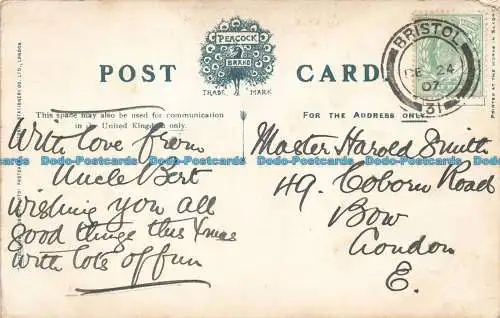 PEACOCK
BRAND
TRADE MARK
POST CARD
BRISTOL
DE 24
07
31
This space may also be used for communication
in the United Kingdom only.
FOR THE ADDRESS ONLY
With love from
Uncle Bert
wishing you all
good things this Xmas
with lots of fun
Master Harold Smith
49. Coborn Road
Bow
London
E.
Dodo-Postcards Dodo-Postcards Dodo-Postcards Dodo-Postcards Dodo-Postcards